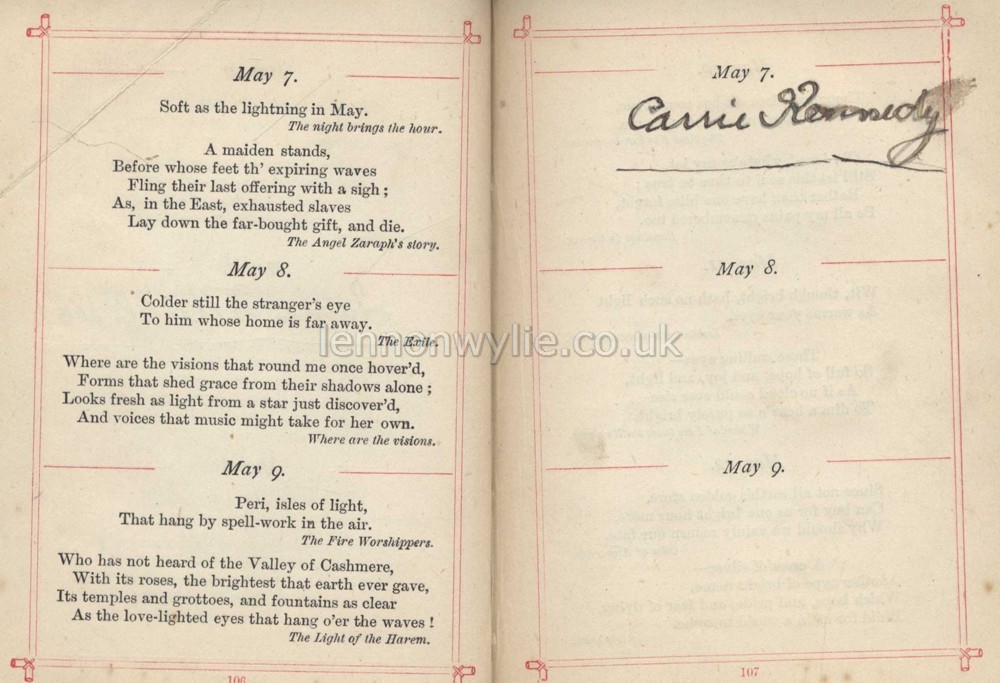 May 7.
Soft as the lightning in May.
The night brings the hour.
A maiden stands,
Before whose feet th' expiring waves
Fling their last offering with a sigh ;
As, in the East, exhausted slaves
Lay down the far-bought gift, and die.
The Angel Zaraph's story.
May 8.
Colder still the stranger's eye
To him whose home is far away.
The Exile.
Where are the visions that round me once hover'd,
Forms that shed grace from their shadows alone ;
Looks fresh as light from a star just discover'd,
And voices that music might take for her own.
Where are the visions.
May 9.
Peri, isles of light,
That hang by spell-work in the air.
The Fire Worshippers.
Who has not heard of the Valley of Cashmere,
With its roses, the brightest that earth ever gave,
Its temples and grottoes, and fountains as clear
As the love-lighted eyes that hang o'er the waves !
The Light of the Harem.
106
May 7.
Carrie Kennedy
May 8.
May 9.
107
lennonwylie.co.uk